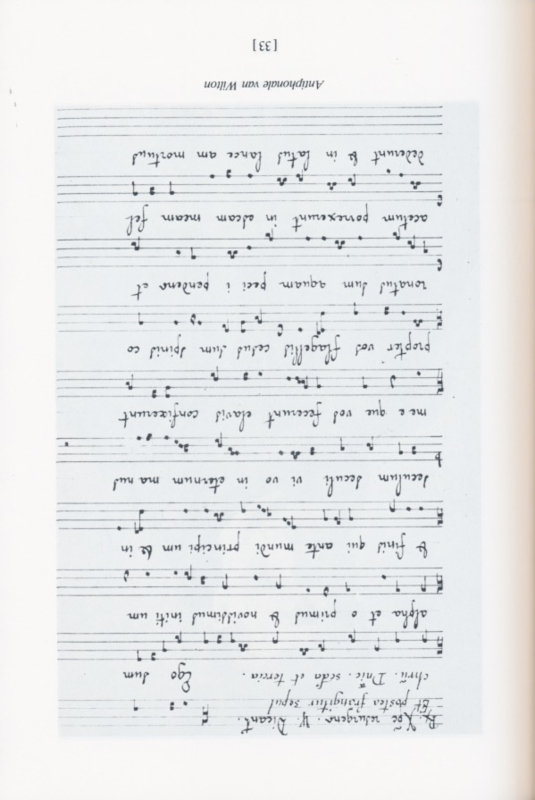 R. Xpc resurgens. V. Dicant.
Et postea frangitur sepul
chrū. Dnic̄. scda et tercia. Ego sum
alpha et o primus & novissimus initi um
& finis qui ante mundi principi um & in
seculum seculi vi vo in eternum ma nus
me e que vos fecerunt clavis confixerunt
propter vos flagellis cesus sum spinis co
ronatus sum aquam peci i pendens et
acetum porrexerunt in escam meam fel
dederunt & in latus lance am mortuus
Antiphonale van Wilton
[33]